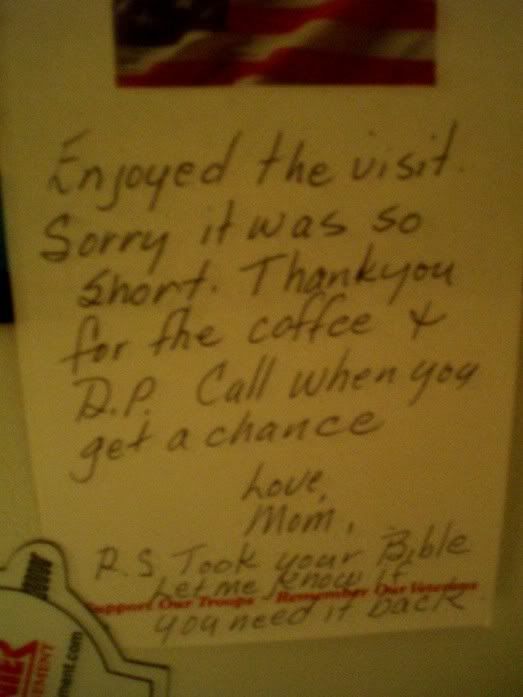 Enjoyed the visit.
Sorry it was so
short. Thankyou
for the coffee &
D.P. Call when you
get a chance
Love,
Mom.
P.S. Took your Bible
Let me know if
Support Our Troops Remember Our Veterans
you need it back
ment.com